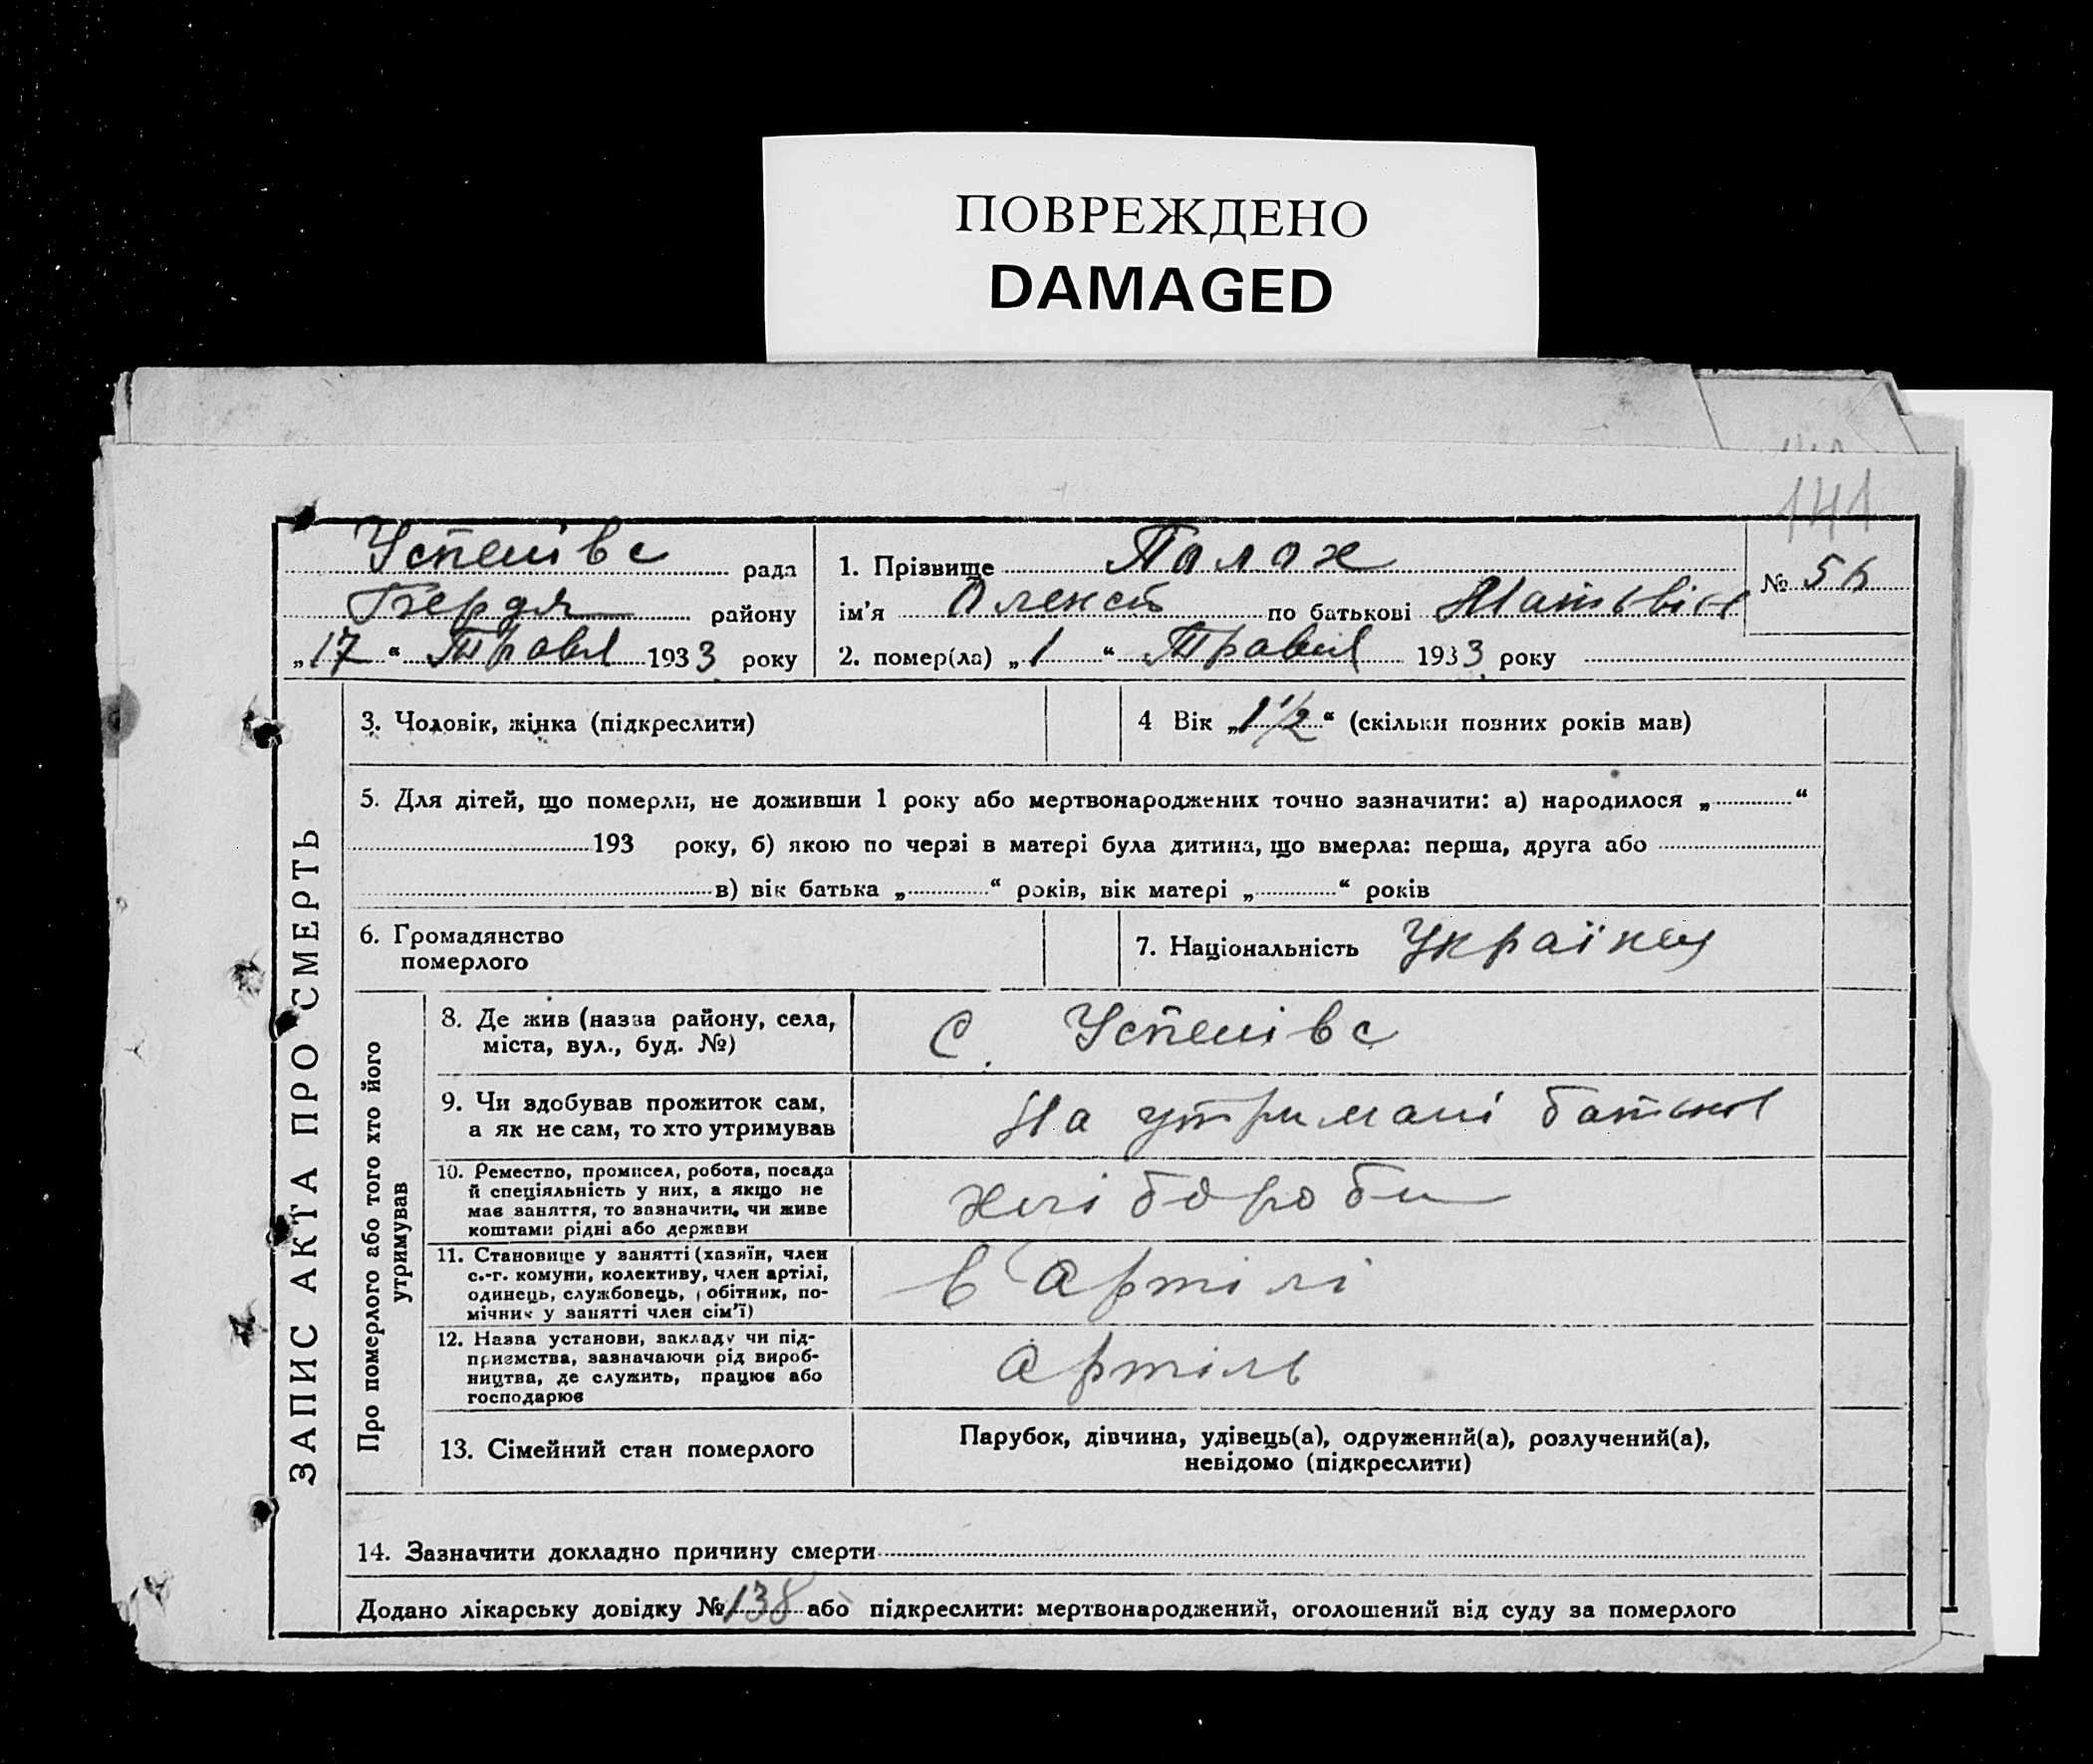 ПОВРЕЖДЕНО
DAMAGED
141
Успенівс рада
Бердя району
„17“ Травня 1933 року
1. Прізвище Палах
ім'я Олексій по батькові Матвієв
№ 56
2. помер(ла) „1“ Травня 1933 року
ЗАПИС АКТА ПРО СМЕРТЬ
3. Чоловік, жінка (підкреслити)
4 Вік „1 1/2“ (скільки повних років мав)
5. Для дітей, що померли, не доживши 1 року або мертвонароджених точно зазначити: а) народилося „ “
193 року, б) якою по черзі в матері була дитина, що вмерла: перша, друга або
в) вік батька „ “ років, вік матері „ “ років
6. Громадянство
померлого
7. Національність Україн
Про померлого або того хто його
утримував
8. Де жив (назва району, села,
міста, вул., буд. №)
С. Успенівс
9. Чи здобував прожиток сам,
а як не сам, то хто утримував
На утримані батька
10. Ремество, промисел, робота, посада
й спеціяльність у них, а якщо не
має заняття, то зазначити, чи живе
коштами рідні або держави
Хлібороби
11. Становище у занятті (хазяїн, член
с.-г. комуни, колективу, член артілі,
одинець, службовець, робітник, по-
мічник у занятті член сім'ї)
в Артілі
12. Назва установи, закладу чи під-
приємства, зазначаючи рід вироб-
ництва, де служить, працює або
господарює
Артіль
13. Сімейний стан померлого
Парубок, дівчина, удівець(а), одружений(а), розлучений(а),
невідомо (підкреслити)
14. Зазначити докладно причину смерти
Додано лікарську довідку № 138 або підкреслити: мертвонароджений, оголошений від суду за померлого